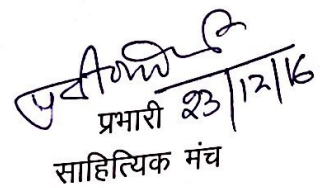 प्रभारी 23/12/16
साहित्यिक मंच